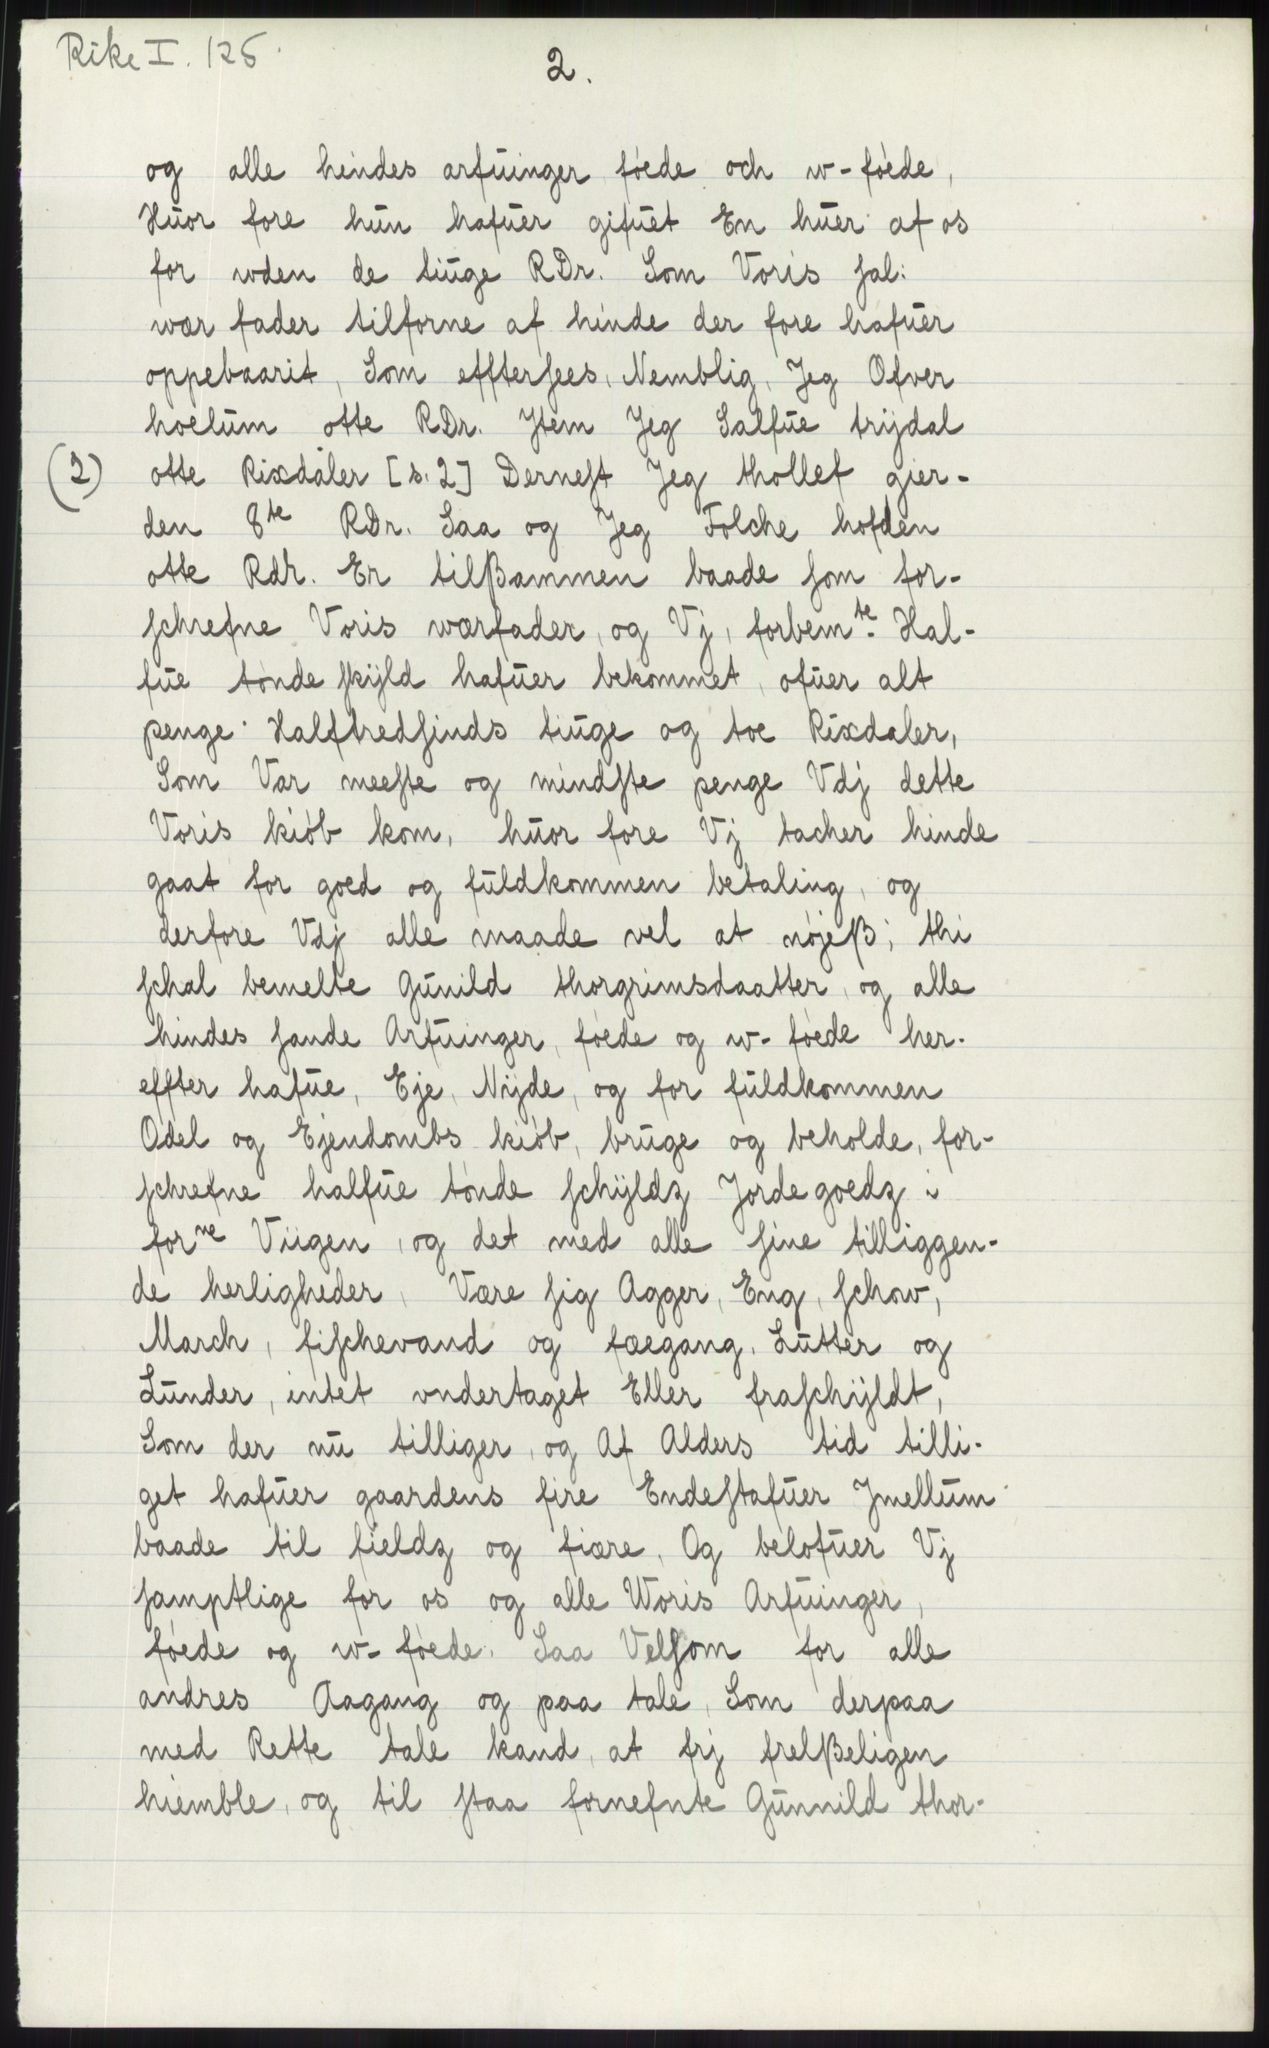 Rike I. 125.
2.
og alle hindes arfuinger föede och w-föede,
Huor fore hun hafuer gifuet En huer af os
for uden de tiuge RDr. Som Voris sal:
wær fader tilforne af hinde der fore hafuer
oppebaarit, Som efftersees, Nemblig, Jeg Ofver
hoelum otte RDr. Jtem Jeg Salfue trijdal
(2) otte Rixdåler [s. 2] Dernest Jeg thollef gier-
den 8te RDr. Saa og Jeg Folche hofden
otte Rdr. Er tilßammen baade som for-
schrefne Voris wærfader, og Vj, forbemte. Hal-
fue tönde skijld hafuer bekommet, ofuer alt
penge Halftredsinds tiuge og toe Rixdaler,
Som Var meeste og mindste penge Vdj dette
Voris kiöb kom, huor fore Vj tacher hinde
gaat for goed og fuldkommen betaling, og
derfore Vdj alle maade vel at nöjeß; thi
schal bemelte Gunild thorgrimsdaatter, og alle
hindes sande Arfuinger, föede og w-föede her-
effter hafue, Eje, Nijde, og for fuldkommen
Odel og Ejendombs kiöb, bruge og beholde, for-
schrefne halfue tönde schijldz Jorde goedz i
forne Viigen, og det med alle sine tilliggen-
de herligheder, Være sig Agger, Eng, schow,
March, fischevand og fægang, Lutter og
Lunder, intet vndertaget Eller fraschijldt,
Som der nu tilliger, og Af Alders tid tilli-
get hafuer gaardens fire Endestafuer Jmellum
baade til fieldz og fiære, Og belofuer Vj
samptlige for os og alle Woris Arfuinger,
föede og w-föede. Saa Velsom for alle
andres Aagang og paa tale, Som derpaa
med Rette tale kand, at frj frelßeligen
hiemble, og til staa fornefnte Gunnild thor-